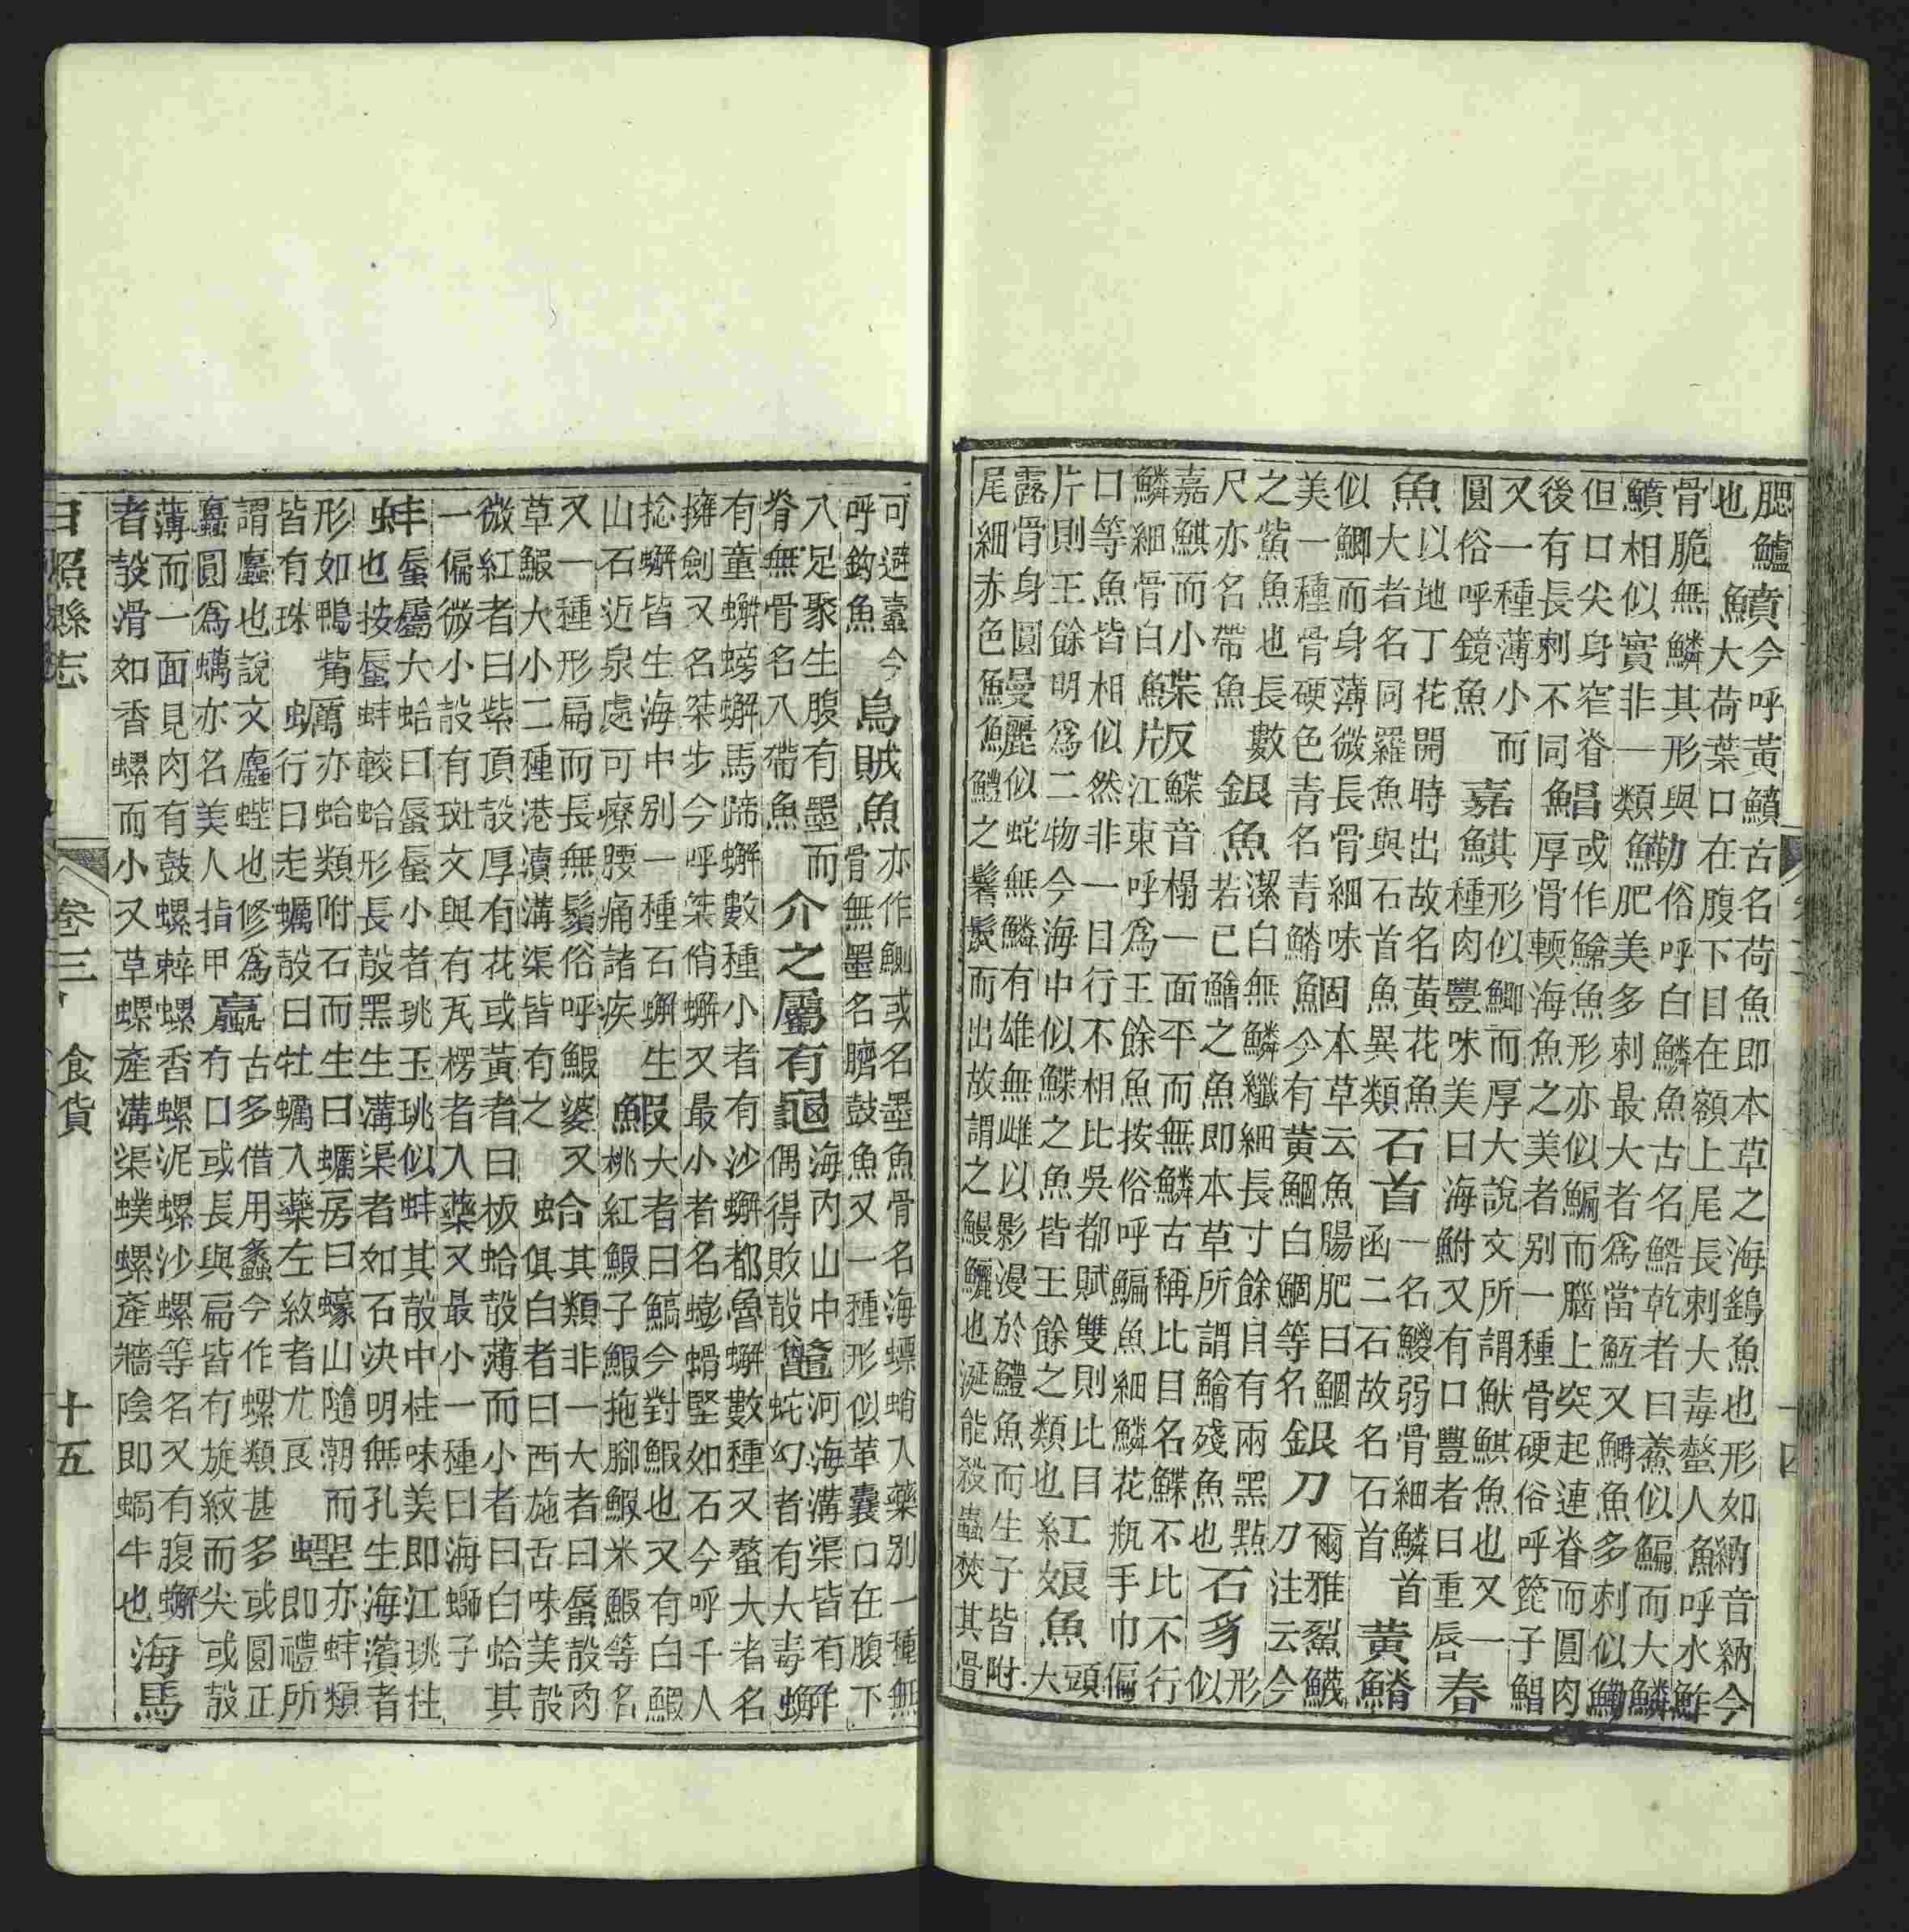 腮鱸
也
鱝
今呼黃鱝古名荷魚即本草之海鷂魚也形如
大荷葉口在腹下目在額上尾長刺大毒螫人
魶
音納今
呼水鮓
骨脆無鱗其形與
鱝相似實非一類
鰳
俗呼白鱗魚古名鮥乾者曰鯗似鯿而大鱗
肥美多刺最大者為當魱又魚多刺似鰳
但口尖身窄脊
後有長刺不同
鯧
或作鯧魚形亦似鯿而腦上突起連脊而圓肉
厚骨輭海魚之美者別一種骨硬俗呼篦子鯧
又一種薄小而
圓俗呼鏡魚
嘉鯕
形似鯽而厚大說文所謂鮲鯕魚也又一
種肉豐味美曰海鮒又有口豐者曰重唇
春
魚
以地丁花開時出故名黃花魚
大者名同羅魚與石首魚異類
石首
一名鯼弱骨細鱗首
函二石故名石首
黃鰿
似鯽而身薄微長骨細味
美一種骨硬色青名青鰿
鮰
本草云魚腸肥曰鮰
今有黃鮰白鮰等名
銀刀
爾雅鮤鱴
刀注云今
之鮆魚也長數
尺亦名帶魚
銀魚
潔白無鱗纖細長寸餘目有兩黑點
若已鱠之魚即本草所謂鱠殘魚也
石豸
形
似
嘉鯕而小
鱗細骨白
鰈
反鰈音榻一面平而無鱗古稱比目名鰈不比不行
片江東呼為王餘魚按俗呼鯿魚細鱗花瓶手巾偏
口等魚皆相似然非一目行不相比吳都賦雙則比目
片則王餘明為二物今海中似鰈之魚皆王餘之類也
紅娘魚
頭
大
露骨身圓
尾細赤色
鰻鱺
似蛇無鱗有雄無雌以影漫於鱧魚而生子皆附
鱧之鬐鬣而出故謂之鰻鱺也涎能殺蟲焚其骨
可避蠹今
呼鈎魚
烏賊魚
亦作鰂或名墨魚骨名海螵蛸入藥別一種無
骨無墨名臍鼓魚又一種形似革囊口在腹下
八足聚生腹有墨而
脊無骨名八帶魚
介之屬有龜
海內山中
偶得敗殼
鼈
河海溝渠皆有
蛇幻者有大毒
蠏
有童蠏螃蠏馬蹄蠏數種小者有沙蠏都魯蠏數種又螯大者名
擁劍又名桀步今呼桀俏蠏又最小者名蟛蜎堅如石今呼千人
捻蠏皆生海中別一種石蠏生
山石近泉處可療腰痛諸疾
鰕
大者曰鰝今對鰕也又有白鰕
桃紅鰕子鰕拖腳鰕米鰕等名
又一種形扁而長無鬚俗呼鰕婆又
草鰕大小二種港瀆溝渠皆有之
蛤
其類非一大者曰蜃殼肉
俱白者曰西施舌味美殼
微紅者曰紫頂殼厚有花或黃者曰板蛤殼薄而小者曰白蛤其
一偏微小殼有斑文與有瓦楞者入藥又最小一種曰海螄子
蚌
蜃屬大蛤曰蜃小者珧玉珧似蚌其殼中柱味美即江珧柱
也按蜃蚌較蛤形長殼黑生溝渠者如石決明無孔生海濱者
形如鴨觜
皆有珠
蠣
亦蛤類附石而生曰蠣房曰蠔山隨潮而
行曰走蠣殼曰牡蠣入藥左紋者尤良
蟶
亦蚌類
即禮所
謂蠯也說文蠯蜌也修為
蠯圓為蠣亦名美人指甲
蠃
古多借用蠡今作螺類甚多或圓正
有口或長與扁皆有旋紋而尖或殼
薄而一面見肉有鼓螺辢螺香螺泥螺沙螺等名又有腹蠏
者殼滑如香螺而小又草螺產溝渠蟆螺產牆陰即蝸牛也
海馬
日照縣志 卷三 食貨 十五